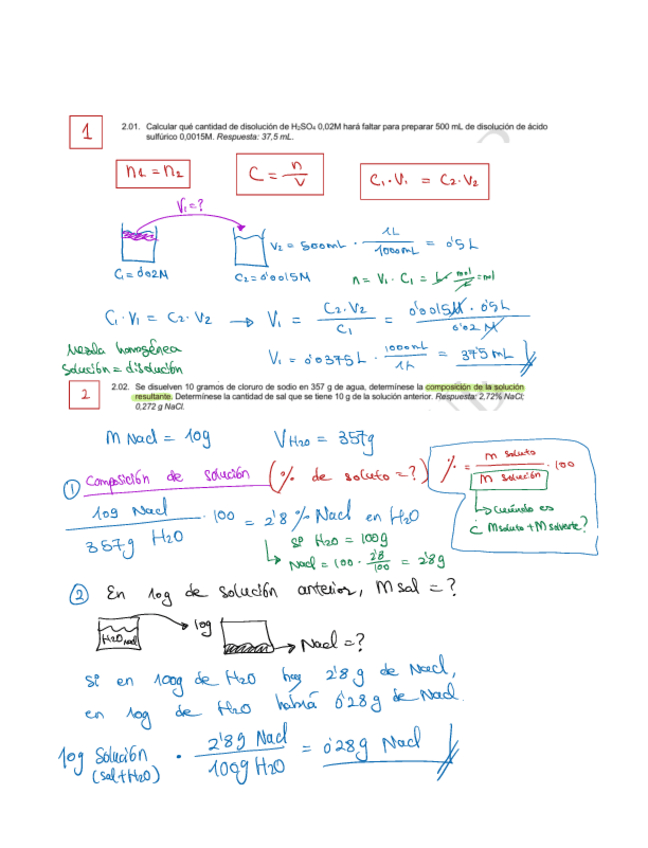 1
2.01. Calcular qué cantidad de disolución de H₂SO₄ 0,02M hará faltar para preparar 500 mL de disolución de ácido
sulfúrico 0,0015M. Respuesta: 37,5 mL.
n1 = n2
C = n/V
C₁·V₁ = C₂·V₂
V₁=?
V₂ = 500mL · 1L/1000mL = 0'5L
C₁=0'02M
C₂=0'0015M
n = V₁ · C₁ = L · mol/L = mol
C₁·V₁ = C₂·V₂ → V₁ = C₂·V₂/C₁ = 0'0015M · 0'5L/0'02M
Mezcla homogénea
Solución = disolución
V₁ = 0'0375L · 1000mL/1L = 37'5 mL
2
2.02. Se disuelven 10 gramos de cloruro de sodio en 357 g de agua, determínese la composición de la solución
resultante. Determínese la cantidad de sal que se tiene 10 g de la solución anterior. Respuesta: 2,72% NaCl;
0,272 g NaCl.
m Nacl = 10g
V H2O = 357g
① Composición de solución (% de soluto=?)
% = m soluto/m solución · 100
↳ cuándo es
¿ msoluto + msolvente?
10g Nacl/357g H2O · 100 = 2'8 % Nacl en H2O
si H2O = 100g
↳ Nacl = 100 · 2'8/100 = 2'8g
② En 10g de solución anterior, m sal = ?
H2O Nacl
10g
→ Nacl = ?
si en 100g de H2O hay 2'8 g de Nacl,
en 10g de H2O habrá 0'28g de Nacl.
10g solución (sal+H2O) · 2'8g Nacl/100g H2O = 0'28g Nacl